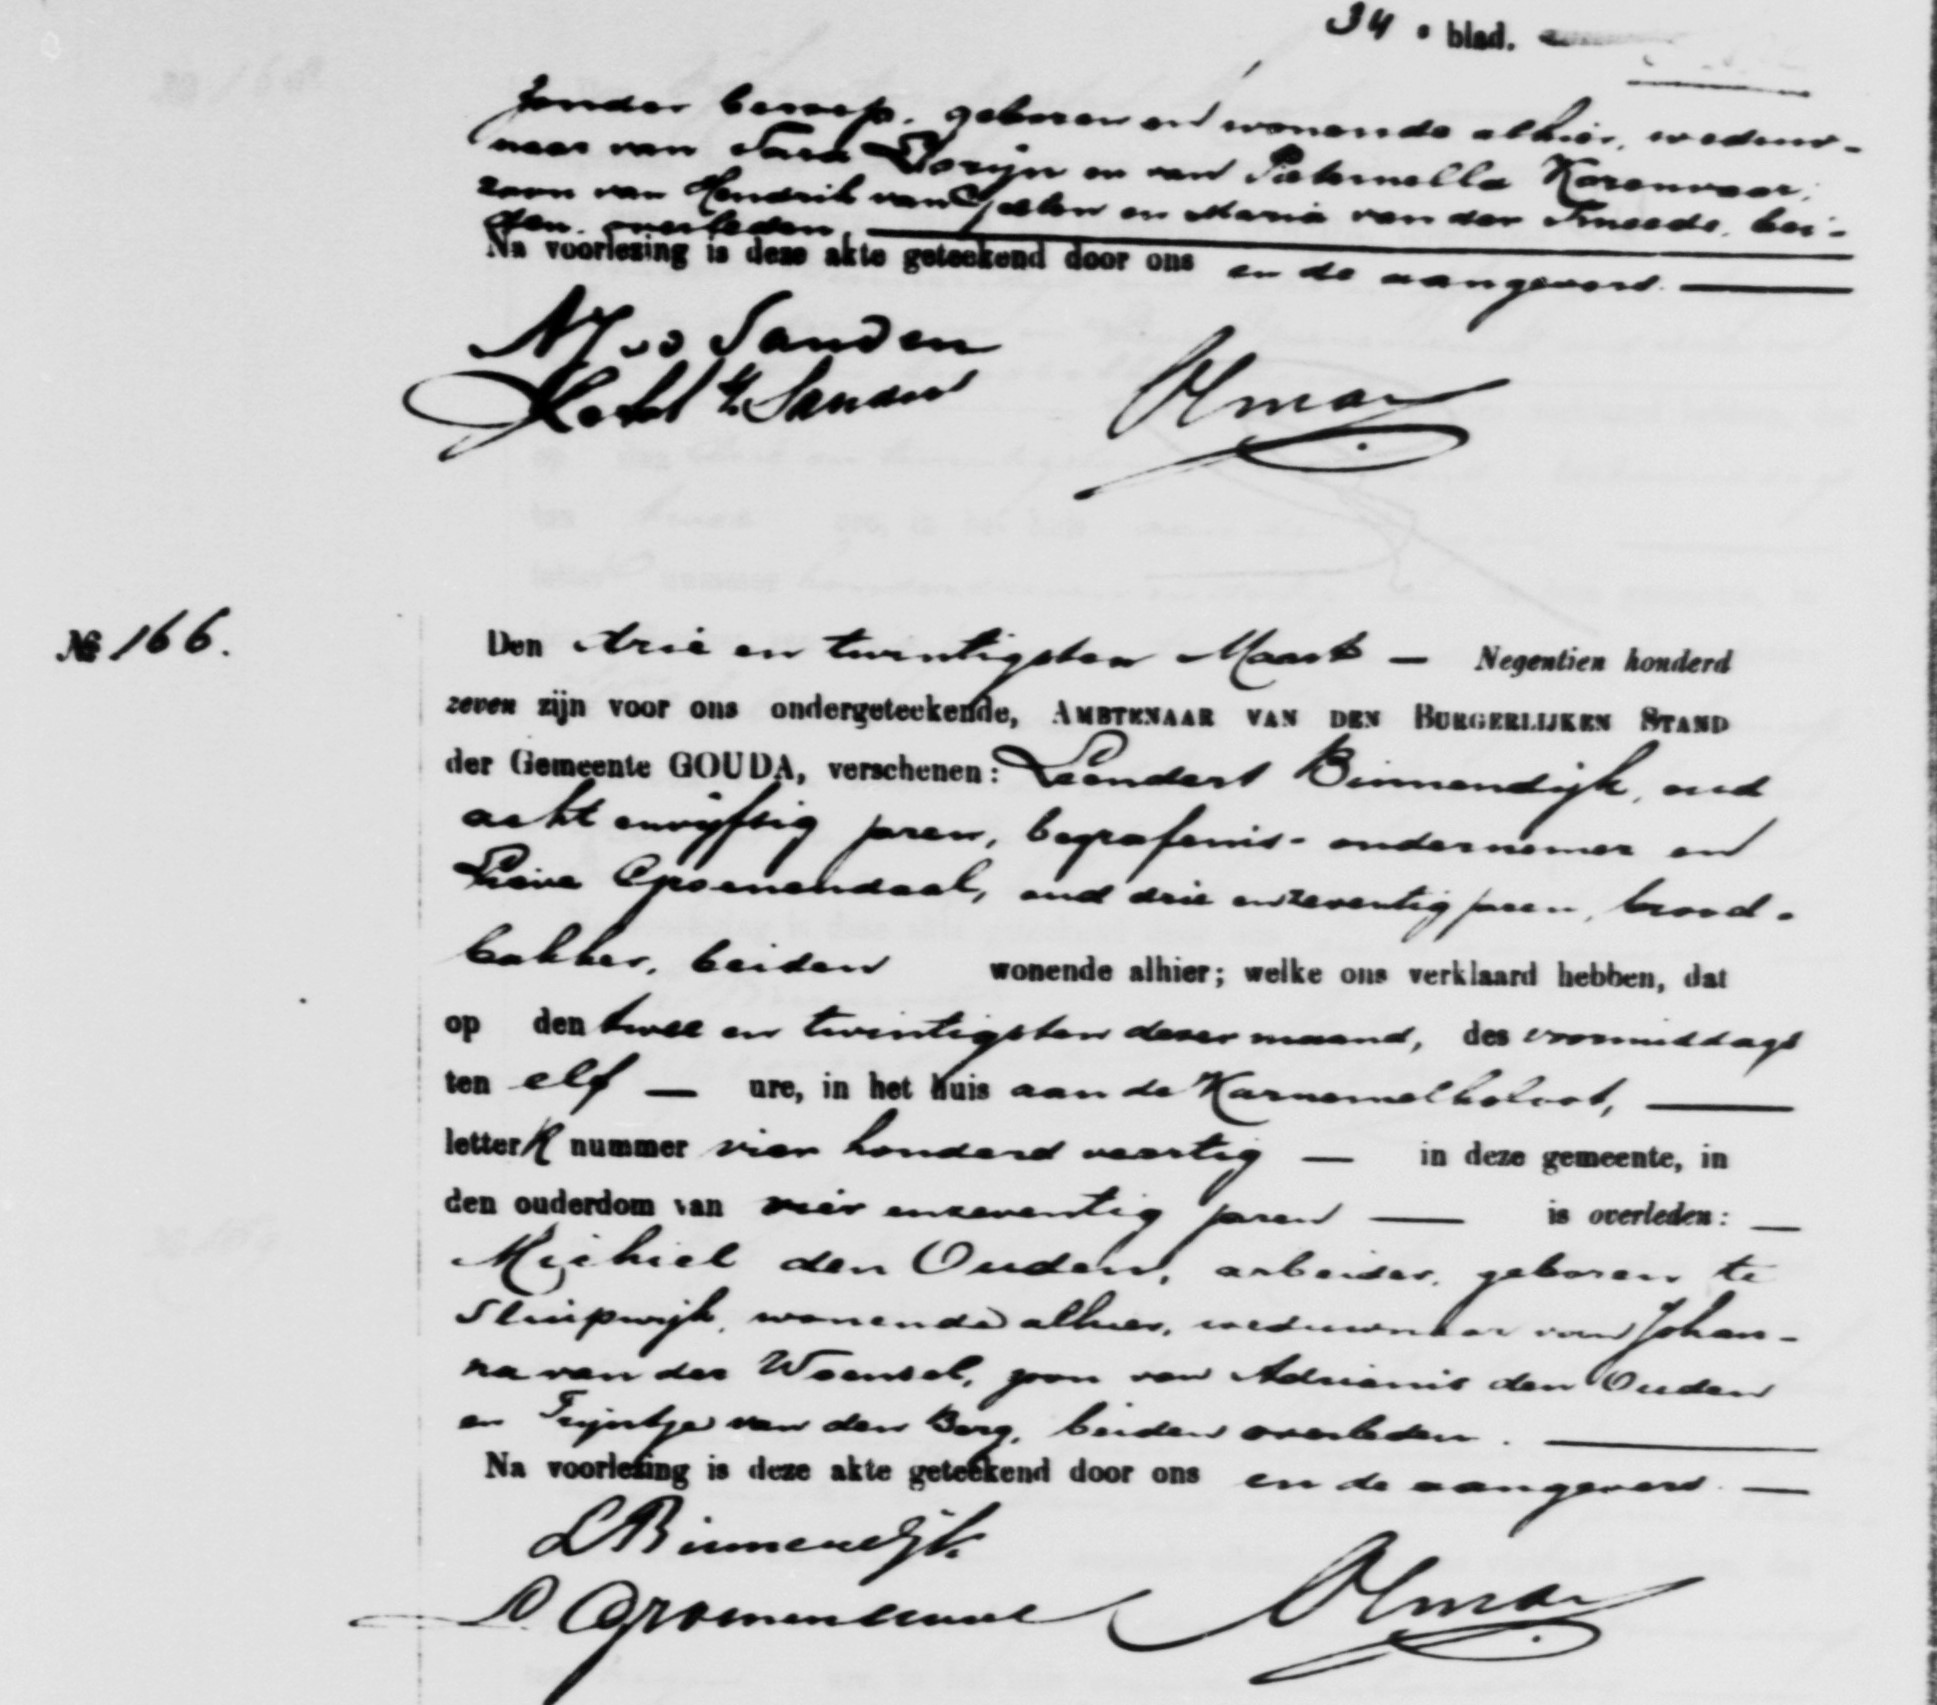 34e blad.
zonder beroep, geboren en wonende alhier, weduw-
naar van Sara Dorijn en van Pieternella Korenvaar;
zoon van Hendrik van IJselen en Maria van der Smeede, bei-
den overleden.
Na voorlezing is deze akte geteekend door ons en de aangevers.
v d Sanden
vd Sanden
№ 166.
Den drie en twintigsten Maart — Negentien honderd
zeven zijn voor ons ondergeteekende, AMBTENAAR VAN DEN BURGERLIJKEN STAND
der Gemeente GOUDA, verschenen: Leendert Binnendijk, oud
acht envijftig jaren, begrafenis-ondernemer en
Groenendaal, oud drie enzeventig jaren, brood-
bakker, beiden wonende alhier; welke ons verklaard hebben, dat
op den twee en twintigsten dezer maand, des voormiddags
ten elf — ure, in het huis aan de Karnemelksloot,
letter R nummer vier honderd veertig — in deze gemeente, in
den ouderdom van vier enzeventig jaren — is overleden: —
Michiel den Ouden, arbeider, geboren te
Sluipwijk, wonende alhier, weduwnaar van Johan-
na van der Woensel, zoon van Adrianis den Ouden
en Trijntje van den Berg, beiden overleden.
Na voorlezing is deze akte geteekend door ons en de aangevers. —
L Binnendijk
Groenendaal